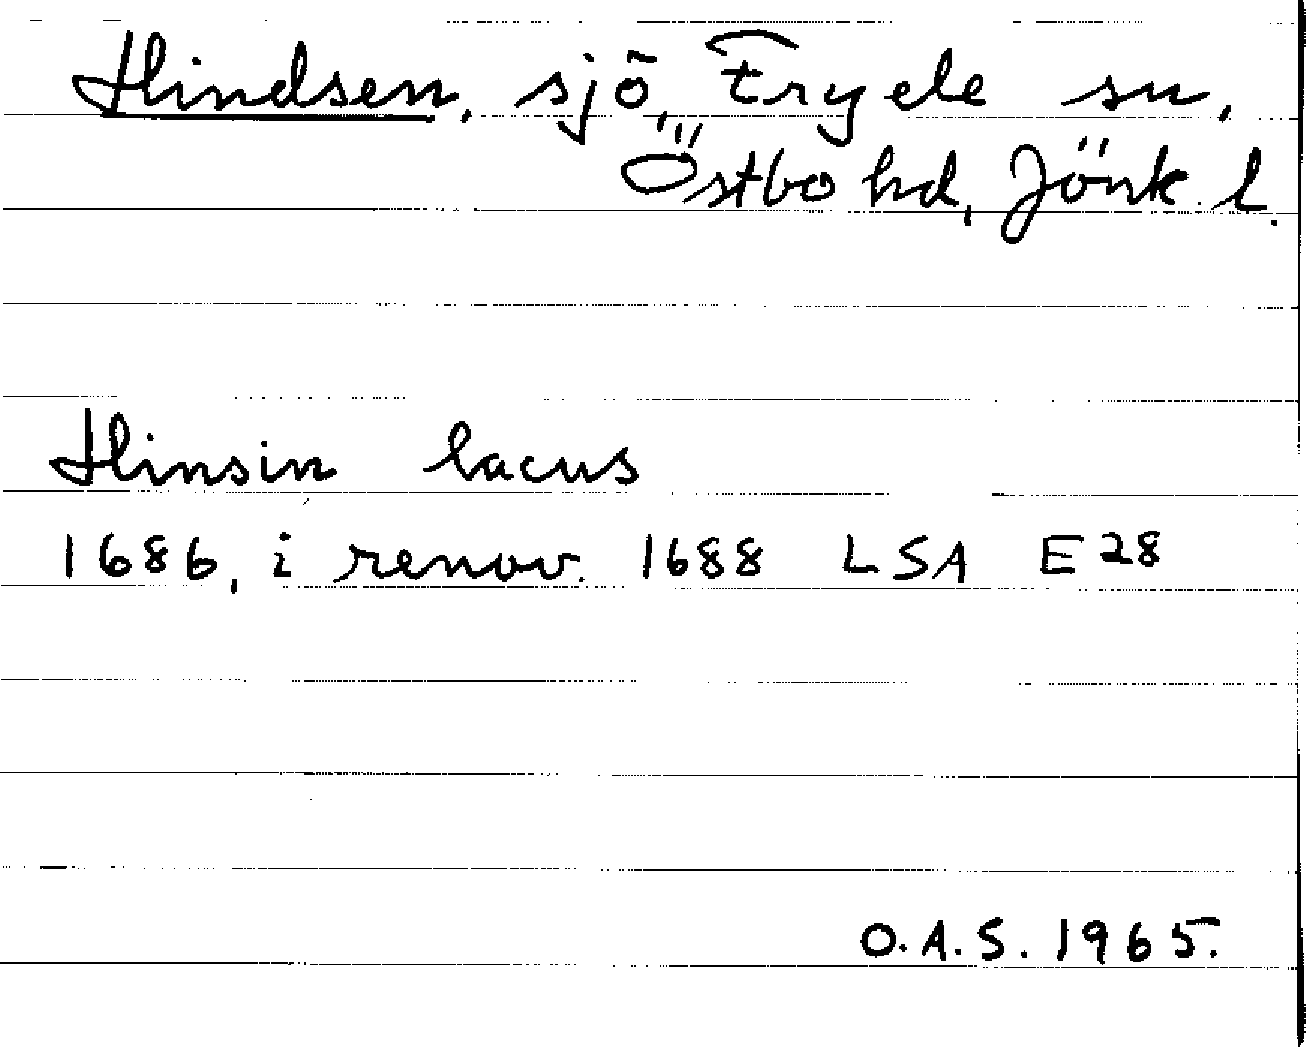 Hindsen, sjö, Tryele sn,
Östbo hd, Jönk. l.
Hinsin lacus
1686, i renov. 1688 LSA E28
O.A.S. 1965.